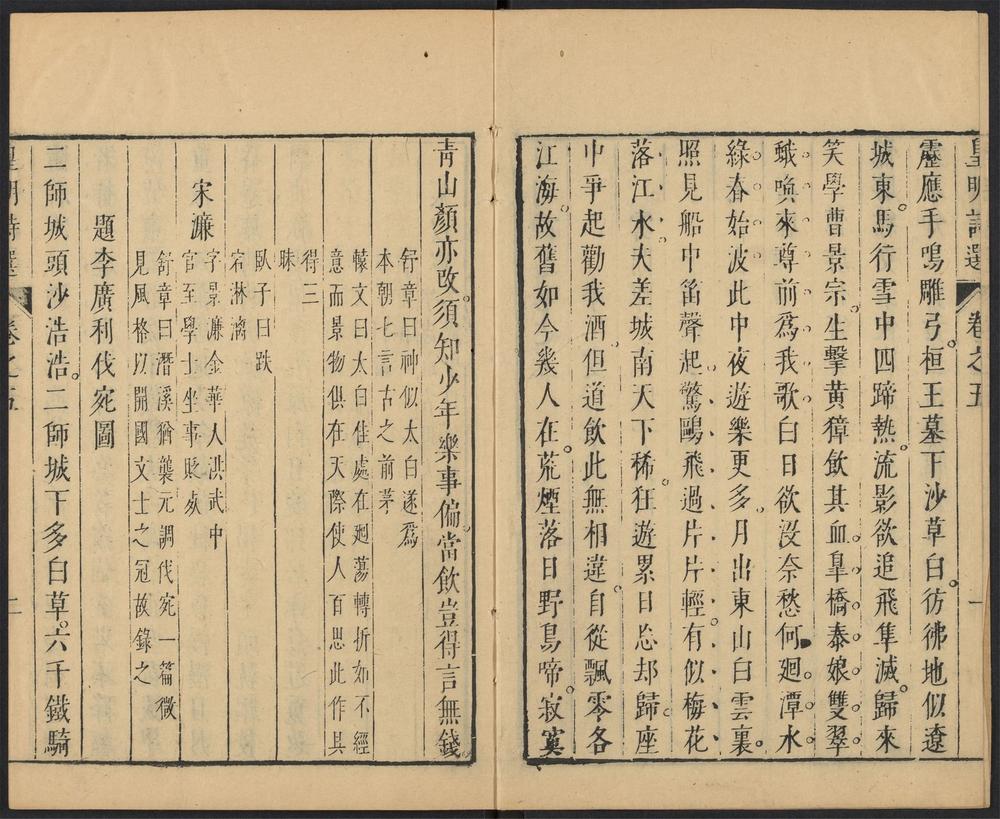 皇明詩選 卷之五 一
靂應手鳴雕弓桓王墓下沙草白。彷彿地似遼
城東。馬行雪中四蹄熱。流影欲追飛隼滅。歸來
笑學曹景宗。生擊黃獐飲其血。臯橋泰娘雙翠
蛾。喚來尊前為我歌。白日欲沒奈愁何。廻潭水
綠春始波。此中夜遊樂更多。月出東山白雲裏。
照見船中笛聲起。驚鷗飛過片片輕。有似梅花
落江水。夫差城南天下稀。狂遊累日忘却歸。座
中爭起勸我酒。但道飲此無相違。自從飄零各
江海。故舊如今幾人在。荒煙落日野鳥啼。寂寞
青山顏亦改。須知少年樂事偏。當飲豈得言無錢
舒章曰神似太白遂為
本朝七言古之前茅
轅文曰太白佳處在廻蕩轉折如不經
意而景物俱在天際使人百思此作具
得三
昧
臥子曰跌
宕淋漓
宋濂
字景濂金華人洪武中
官至學士坐事貶夔
舒章曰潛溪猶襲元調伐宛一篇微
見風格以開國文士之冠故錄之
題李廣利伐宛圖
二師城頭沙浩浩。二師城下多白草。六千鐵騎
皇明詩選 卷之五 二